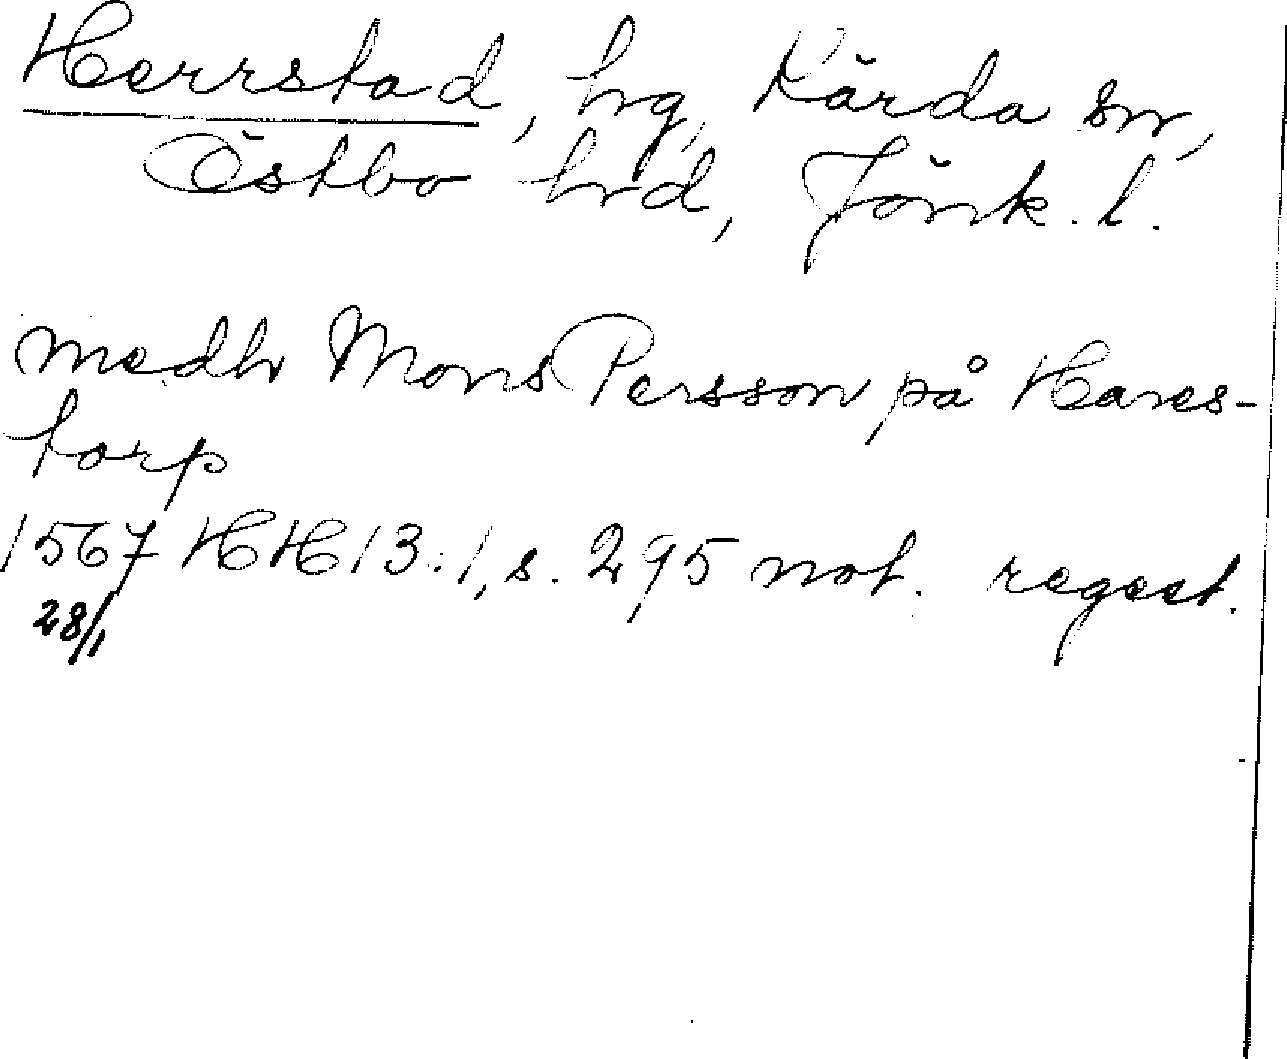 Herrstad, hg, Kärda sn,
Östbo hrd, Jönk. l.
medh Mons Persson på Hares-
torp
1567 HH 13:1, s. 295 not. regest.
28/1